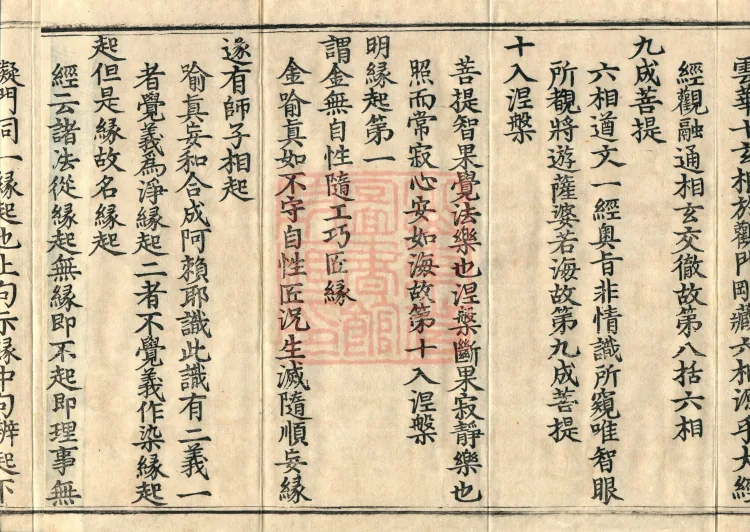 雲華十玄相於觀門剛藏六相源乎大經
經觀融通相玄交徹故第八括六相
九成菩提
六相道文一經奧旨非情識所窺唯智眼
所觀將遊薩婆若海故第九成菩提
十入涅槃
菩提智果覺法樂也涅槃斷果寂靜樂也
照而常寂心安如海故第十入涅槃
明緣起第一
謂金無自性隨工巧匠緣
金喻真如不守自性匠況生滅隨順妄緣
遂有師子相起
喻真妄和合成阿賴耶識此識有二義一
者覺義為淨緣起二者不覺義作染緣起
起但是緣故名緣起
經云諸法從緣起無緣即不起即理事無
礙門同一緣起也上句示緣中句辨起下